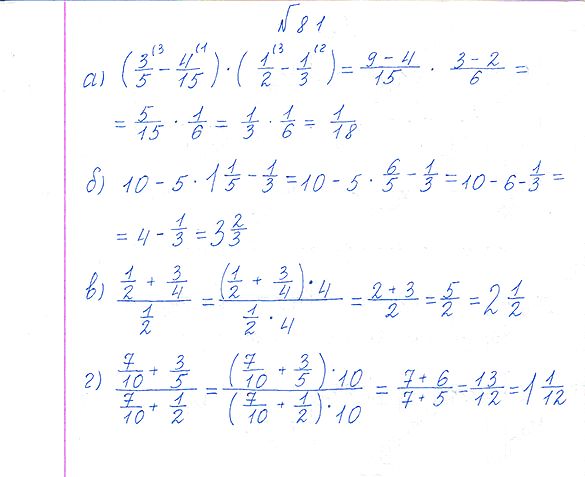 №81
а) (3/5⁽³ − 4/15⁽¹) · (1/2⁽³ − 1/3⁽²) = (9 − 4)/15 · (3 − 2)/6 =
= 5/15 · 1/6 = 1/3 · 1/6 = 1/18
б) 10 − 5 · 1 1/5 − 1/3 = 10 − 5 · 6/5 − 1/3 = 10 − 6 − 1/3 =
= 4 − 1/3 = 3 2/3
в) (1/2 + 3/4)/(1/2) = ((1/2 + 3/4) · 4)/(1/2 · 4) = (2 + 3)/2 = 5/2 = 2 1/2
г) (7/10 + 3/5)/(7/10 + 1/2) = ((7/10 + 3/5) · 10)/((7/10 + 1/2) · 10) = (7 + 6)/(7 + 5) = 13/12 = 1 1/12